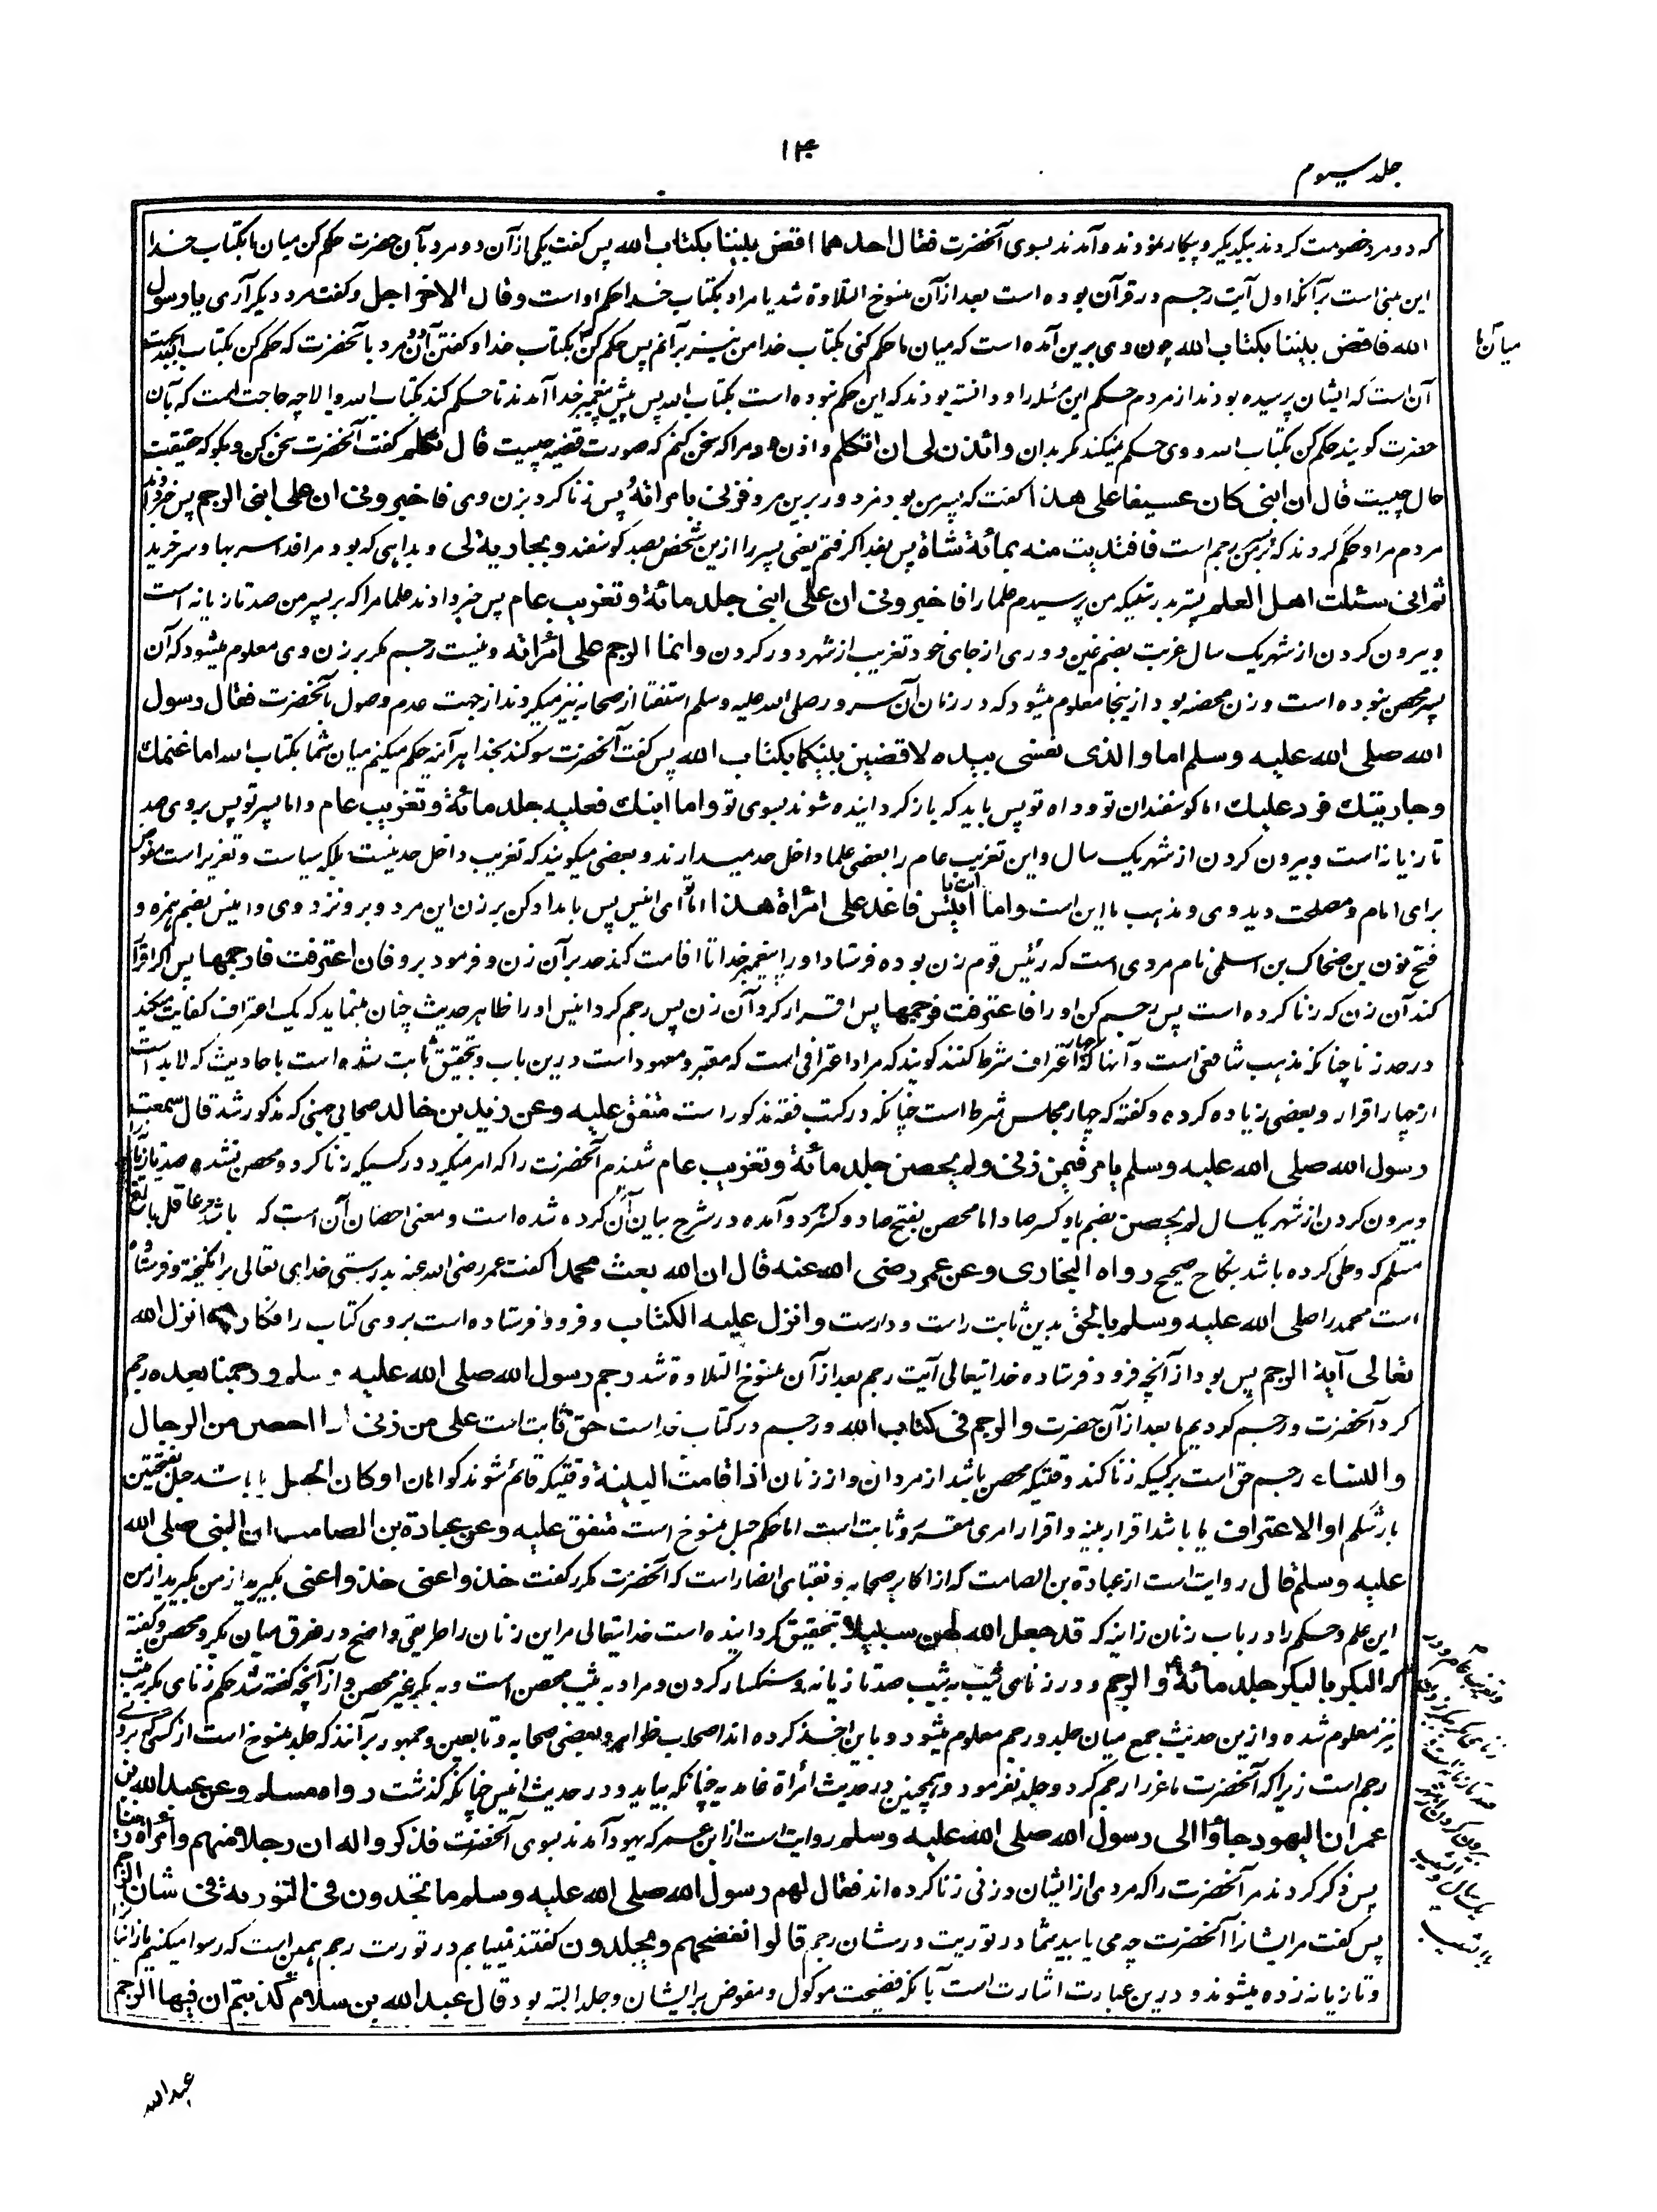 جلد سیوم
۱۴
که دو مرد خصومت کردند بیکدیگر و پیکار نمودند و آمدند بسوی آنحضرت فقال احدهما اقض بیننا بکتاب الله پس گفت یکی از آن دو مرد بآن حضرت حکم کن میان ما بکتاب خدا
این مبنی است برآنکه اول آیت رجم در قرآن بوده است بعد از آن منسوخ التلاوة شد یا مراد بکتاب خدا حکم او است وقال الاخر اجل و گفت مرد دیگر آری یا رسول
الله فاقض بیننا بکتاب الله چون وی برین آمده است که میان ما حکم کنی بکتاب خدا من نیز برآنم پس حکم کن بکتاب خدا و گفتن آن دو مرد بآنحضرت که حکم کن بکتاب
میان ما
آن است که ایشان پرسیده بودند از مردم حکم این مسئله را و دانسته بودند که این حکم نبوده است بکتاب الله پس پیش پیغمبر خدا آمدند تا حکم کند بکتاب الله والا چه حاجت است که بآن
حضرت گویند حکم کن بکتاب الله و وی حکم نمیکند مگر بدان وائذن لی ان اتکلم و اذن ده مرا که سخن کنم که صورت قضیه چیست قال تکلم گفت آنحضرت سخن کن و بگو که حقیقت
حال چیست قال ان ابنی کان عسیفا علی هذا گفت که پسر من بود مزدور برین مرد فزنی بامرأته پس زنا کرد بزن وی فاخبرونی ان علی ابنی الرجم پس خبر دادند
مردم مرا و حکم کردند که بر پسر من رجم است فافتدیت منه بمائة شاة پس بفدا گرفتم یعنی پسر را ازین شخص بصد گوسفند وبجاریة لی و بداهی که بود مرا فدا سر بها و سر خرید
ثم انی سئلت اهل العلم پستر بدرستیکه من پرسیدم علما را فاخبرونی ان علی ابنی جلد مائة وتغریب عام پس خبر دادند علما مرا که بر پسر من صد تازیانه است
و بیرون کردن از شهر یک سال غربت بضم غین دوری از جای خود تغریب از شهر دور کردن وانما الرجم علی امرأته و نیست رجم مگر بر زن وی معلوم میشود که آن
پسر محصن نبوده است و زن محصنه بود از ینجا معلوم میشود که در زمان آن سرور صلی الله علیه وسلم استفتا از صحابه نیز میکردند از جهت عدم وصول بآنحضرت فقال رسول
الله صلی الله علیه وسلم اما والذی نفسی بیده لاقضین بینکما بکتاب الله پس گفت آنحضرت سوگند بخدا هر آئنه حکم میکنم میان شما بکتاب الله اما غنمك
وجاریتك فرد علیك اما گوسفندان تو و داه تو پس باید که باز گردانیده شوند بسوی تو واما ابنك فعلیه جلد مائة وتغریب عام و اما پسر تو پس بروی صد
تازیانه است و بیرون کردن از شهر یک سال و این تغریب عام را بعضی علما داخل حد میدارند و بعضی میگویند که تغریب داخل حد نیست بلکه سیاست و تعزیر است مفوض
برای امام و مصلحت دید وی و مذهب ما این است واما انت یا انیس فاغد علی امرأة هذا اما تو ای انیس پس بامداد کن بر زن این مرد و برو نزد وی و انیس بضم همزه و
فتح نون بن ضحاک بن اسلمی نام مردی است که رئیس قوم زن بوده فرستاد او را پیغمبر خدا تا اقامت کند حد بر آن زن و فرمود برو فان اعترفت فارجمها پس اگر اقرار
کند آن زن که زنا کرده است پس رجم کن او را فاعترفت فرجمها پس اقرار کرد آن زن پس رجم کرد انیس او را ظاهر حدیث چنان مینماید که یک اعتراف کفایت میکند
در حد زنا چنانکه مذهب شافعی است و آنها که چهار اعتراف شرط کنند گویند که مراد اعترافی است که معتبر و معهود است درین باب و بتحقیق ثابت شده است باحادیث که لابد است
از چهار اقرار و بعضی زیاده کرده و گفته که چهار مجلس شرط است چنانکه در کتب فقه مذکور است متفق علیه وعن زید بن خالد صحابی جهنی که مذکور شد قال سمعت
رسول الله صلی الله علیه وسلم یامر فیمن زنی ولم یحصن جلد مائة وتغریب عام شنیدم آنحضرت را که امر میکرد در کسیکه زنا کرد و محصن نشده صد تازیانه
و بیرون کردن از شهر یکسال لم یحصن بضم یا و کسر صاد اما محصن بفتح صاد و کسر هر دو آمده در شرح بیان آن کرده شده است و معنی احصان آن است که باشد حر عاقل بالغ
مسلم که وطی کرده باشد بنکاح صحیح رواه البخاری وعن عمر رضی الله عنه قال ان الله بعث محمدا گفت عمر رضی الله عنه بدرستی خدای تعالی برانگیخته و فرستاده
است محمد را صلی الله علیه وسلم بالحق بدین ثابت راست و درست وانزل علیه الکتاب و فرود فرستاده است بروی کتاب را فکان مما انزل الله
تعالی آیة الرجم پس بود از آنچه فرود فرستاده خدا تعالی آیت رجم بعد از آن منسوخ التلاوة شد رجم رسول الله صلی الله علیه وسلم ورجمنا بعده رجم
کرد آنحضرت و رجم کردیم ما بعد از آن حضرت والرجم فی کتاب الله و رجم در کتاب خداست حق ثابت است علی من زنی اذا احصن من الرجال
والنساء رجم حق است بر کسیکه زنا کند وقتیکه محصن باشد از مردان و از زنان اذا قامت البینة وقتیکه قائم شوند گواهان او کان الحبل یا باشد حبل بفتحتین
بار شکم او الاعتراف یا باشد اقرار بینه و اقرار امری مقرر و ثابت است اما حکم حبل منسوخ است متفق علیه وعن عبادة بن الصامت ان النبی صلی الله
علیه وسلم قال روایت است از عبادة بن الصامت که از اکابر صحابه و نقبای انصار است که آنحضرت مکرر گفت خذوا عنی خذوا عنی بگیرید از من بگیرید از من
این علم و حکم را در باب زنان زانیه که قد جعل الله لهن سبیلا بتحقیق گردانیده است خدا یتعالی مر این زنان را طریقی واضح در فرق میان بکر و محصن و گفته
که البکر بالبکر جلد مائة والرجم و در زنای ثیب به ثیب صد تازیانه و سنگسار کردن و مراد به ثیب محصن است و به بکر غیر محصن و از آنچه گفته شد حکم زنای بکر به ثیب
نیز معلوم شده و ازین حدیث جمع میان جلد و رجم معلوم میشود و باین اخذ کرده اند اصحاب ظواهر و بعضی صحابه و تابعین و جمهور برآنند که جلد منسوخ است از کسی که بروی
رجم است زیرا که آنحضرت ماعز را رجم کرد و جلد نفرمود و همچنین در حدیث امرأة غامدیه چنانکه بیاید و در حدیث انیس چنانکه گذشت رواه مسلم وعن عبد الله بن
عمر ان الیهود جاؤا الی رسول الله صلی الله علیه وسلم روایت است از ابن عمر که یهود آمدند بسوی آنحضرت فذکروا له ان رجلا منهم وامرأة زنیا
پس ذکر کردند مر آنحضرت را که مردی از ایشان و زنی زنا کرده اند فقال لهم رسول الله صلی الله علیه وسلم ما تجدون فی التوریة فی شان الرجم
پس گفت مر ایشانرا آنحضرت چه می یابید شما در توریت در شان رجم قالوا نفضحهم ویجلدون گفتند نمییابیم در توریت رجم همین است که رسوا میکنیم زانیان را
و تازیانه زده میشوند و درین عبارت اشارت است بآنکه فضیحت موکول و مفوض بر ایشان و جلد البته بود قال عبد الله بن سلام کذبتم ان فیها الرجم
عبدالله